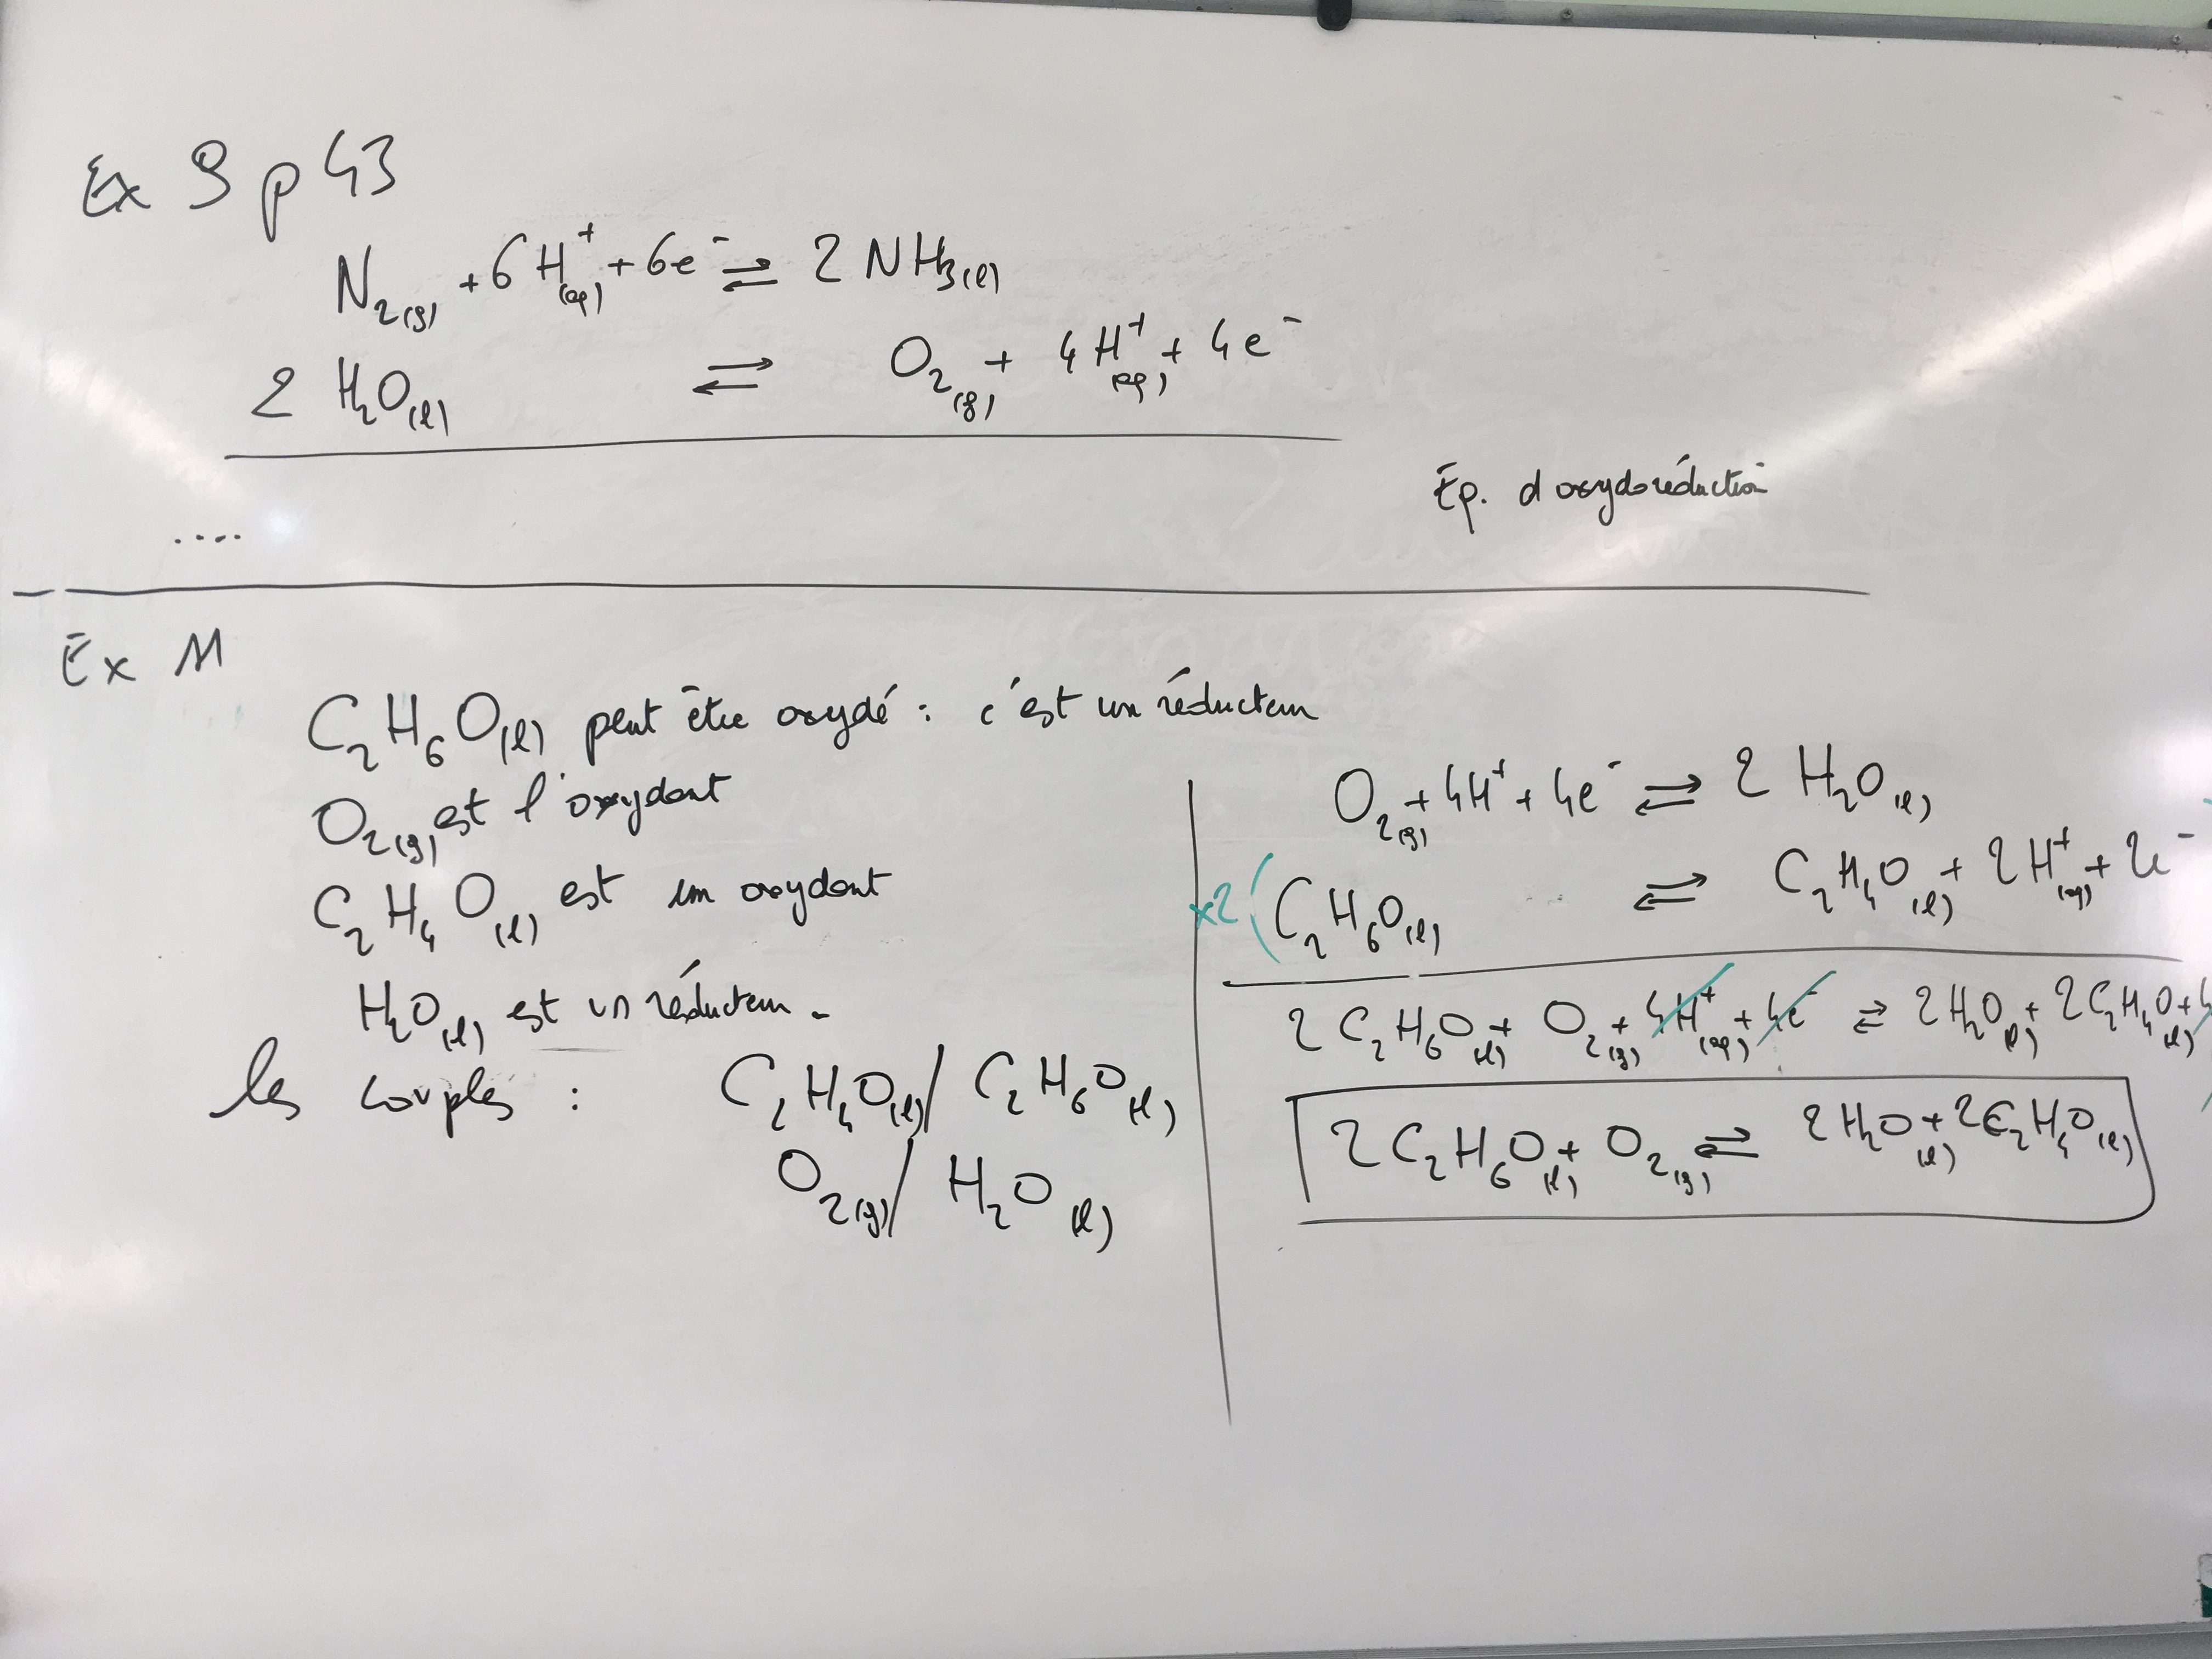 Ex 9 p 43
N₂(g) + 6 H⁺(aq) + 6e⁻ ⇌ 2 NH₃(l)
2 H₂O(l) ⇌ O₂(g) + 4 H⁺(aq) + 4e⁻
Eq. d'oxydoréduction
....
Ex 11
C₂H₆O(l) peut être oxydé : c'est un réducteur
O₂(g) est l'oxydant
C₂H₄O(l) est un oxydant
H₂O(l) est un réducteur.
les couples : C₂H₄O(l) / C₂H₆O(l)
O₂(g) / H₂O(l)
O₂(g) + 4H⁺ + 4e⁻ ⇌ 2 H₂O(l)
x2 ( C₂H₆O(l) ⇌ C₂H₄O(l) + 2H⁺(aq) + 2e⁻
2 C₂H₆O(l) + O₂(g) + 4H⁺(aq) + 4e⁻ ⇌ 2H₂O(l) + 2C₂H₄O(l) + 4
2 C₂H₆O(l) + O₂(g) ⇌ 2H₂O(l) + 2C₂H₄O(l)